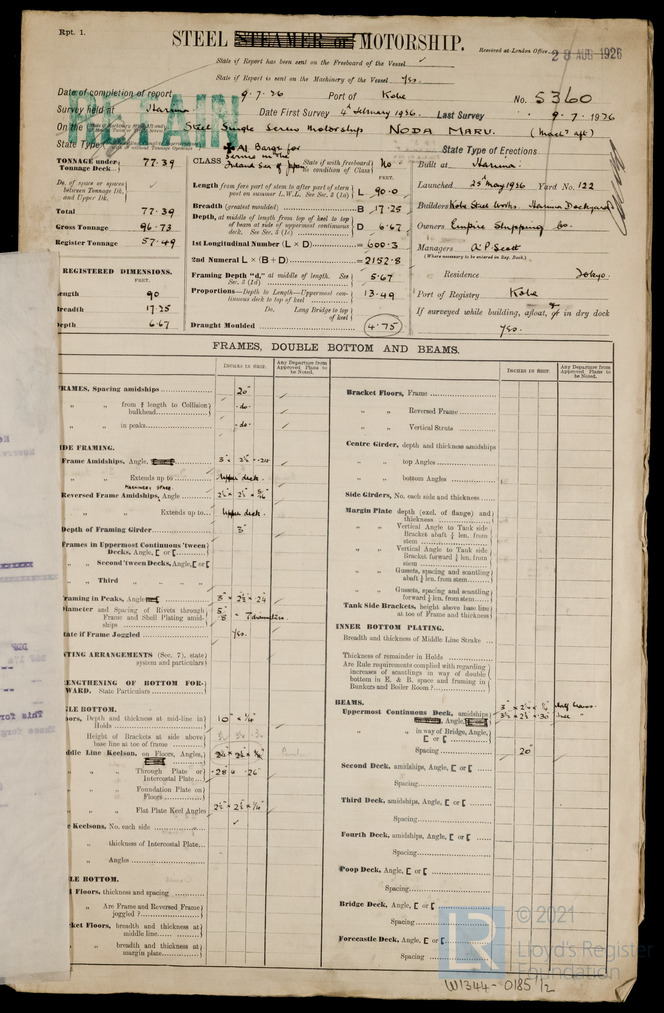 Rpt. 1.
STEEL STEAMER or MOTORSHIP.
Received at London Office 28 AUG 1926
State if Report has been sent on the Freeboard of the Vessel
State if Report is sent on the Machinery of the Vessel Yes.
Date of completion of report 9.7.26 Port of Kobe No. 5360
Survey held at Harima Date First Survey 4th February 1926. Last Survey 9.7.1926
RETAIN
On the Steel Single Screw Motorship NODA MARU. (Mach'y aft)
State Type State Type of Erections
TONNAGE under Tonnage Deck 77.39
Do. of space or spaces between Tonnage Dk. and Upper Dk.
Total 77.39
Gross Tonnage 96.73
Register Tonnage 57.49
REGISTERED DIMENSIONS.
FEET.
Length 90
Breadth 17.25
Depth 6.67
CLASS ✠ A1 Barge for service in the Inland Sea of Japan
State if with freeboard as condition of Class No
FEET
Length from fore part of stem to after part of stern post on summer L.W.L. See Sec. 3 (1a) L 90.0
Breadth (greatest moulded) B 17.25
Depth, at middle of length from top of keel to top of beam at side of uppermost continuous deck. See Sec. 3 (1c) D 6.67
1st Longitudinal Number (L × D) = 600.3
2nd Numeral L × (B + D) = 2152.8
Framing Depth "d," at middle of length. See Sec. 3 (1d) 5.67
Proportions—Depth to Length—Uppermost continuous deck to top of keel 13.49
Do. Long Bridge to top of keel
Draught Moulded 4.75
Built at Harima.
Launched 25th May 1926 Yard No. 122
Builders Kobe Steel Works. Harima Dockyard
Owners Empire Shipping Co.
Managers A. P. Scott
(Where necessary to be entered in Reg. Book.)
Residence Tokyo.
Port of Registry Kobe
If surveyed while building, afloat, or in dry dock
Yes.
FRAMES, DOUBLE BOTTOM AND BEAMS.
INCHES IN SHIP.
Any Departure from Approved Plans to be Noted.
INCHES IN SHIP.
Any Departure from Approved Plans to be Noted.
FRAMES, Spacing amidships 20"
" " from ⅗ length to Collision bulkhead -do-
" " in peaks -do-
SIDE FRAMING.
Frame Amidships, Angle,
" " Extends up to Upper deck.
Reversed Frame Amidships, Angle
" " Extends up to Upper deck.
Depth of Framing Girder 3"
Frames in Uppermost Continuous 'tween Decks, Angle, [ or [
" " Second 'tween Decks, Angle, [ or [
" " Third " " " "
Framing in Peaks, Angle
Diameter and Spacing of Rivets through Frame and Shell Plating amidships 5/8" - 7 diameters.
State if Frame Joggled Yes.
PANTING ARRANGEMENTS (Sec. 7), state system and particulars
STRENGTHENING OF BOTTOM FORWARD. State Particulars
SINGLE BOTTOM.
Floors, Depth and thickness at mid-line in Holds 10" × ¼"
Height of Brackets at side above base line at toe of frame
Middle Line Keelson, on Floors, Angles,
" " Through Plate or Intercostal Plate
" " Foundation Plate on Floors
" " Flat Plate Keel Angles 2½" × 2½" × ¼"
Side Keelsons, No. each side
" thickness of Intercostal Plate
" Angles
DOUBLE BOTTOM.
Solid Floors, thickness and spacing
" Are Frame and Reversed Frame joggled ?
Bracket Floors, breadth and thickness at middle line
" breadth and thickness at margin plate
Bracket Floors, Frame
" " Reversed Frame
" " Vertical Struts
Centre Girder, depth and thickness amidships
" " top Angles
" " bottom Angles
Side Girders, No. each side and thickness
Margin Plate depth (excl. of flange) and thickness
" " Vertical Angle to Tank side Bracket abaft ¼ len. from stem
" " Vertical Angle to Tank side Bracket forward ¼ len. from stem
" " Gussets, spacing and scantling abaft ¼ len. from stem
" " Gussets, spacing and scantling forward ¼ len. from stem
Tank Side Brackets, height above base line at toe of Frame and thickness
INNER BOTTOM PLATING.
Breadth and thickness of Middle Line Strake
Thickness of remainder in Holds
Are Rule requirements complied with regarding increases of scantlings in way of double bottom in E. & B. space and framing in Bunkers and Boiler Room?
BEAMS.
Uppermost Continuous Deck, amidships, Angle,
" " in way of Bridge, Angle, [ or [
Spacing 20"
Second Deck, amidships, Angle, [ or [
Spacing
Third Deck, amidships, Angle, [ or [
Spacing
Fourth Deck, amidships, Angle, [ or [
Spacing
Poop Deck, Angle, [ or [
Spacing
Bridge Deck, Angle, [ or [
Spacing
Forecastle Deck, Angle, [ or [
Spacing
LR © 2021
Lloyd's Register
Foundation
W1344-0185 1/2